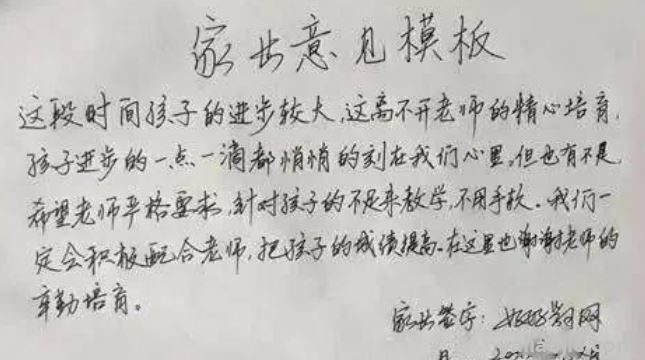 家长意见模板
这段时间孩子的进步较大,这离不开老师的精心培育,
孩子进步的一点一滴都悄悄的刻在我们心里,但也有不足,
希望老师严格要求,针对孩子的不足来教学,不用手软。我们一
定会积极配合老师,把孩子的成绩提高。在这里也谢谢老师的
辛勤培育。
家长签字: